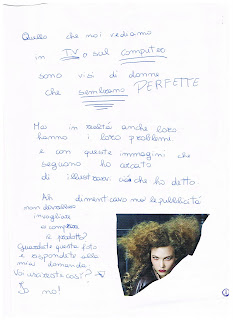 Quello che noi vediamo
in TV o sul computer
sono visi di donne
che sembrano PERFETTE
Ma in realtà anche loro
hanno i loro problemi
e con queste immagini che
seguono ho cercato
di illustrarvi ciò che ho detto.
Ah dimenticavo ma le pubblicità
non dovrebbero
invogliare
a comprare
il prodotto?
Guardate questa foto
e rispondete alla
mia domanda.
Voi uscireste così?
Io no!